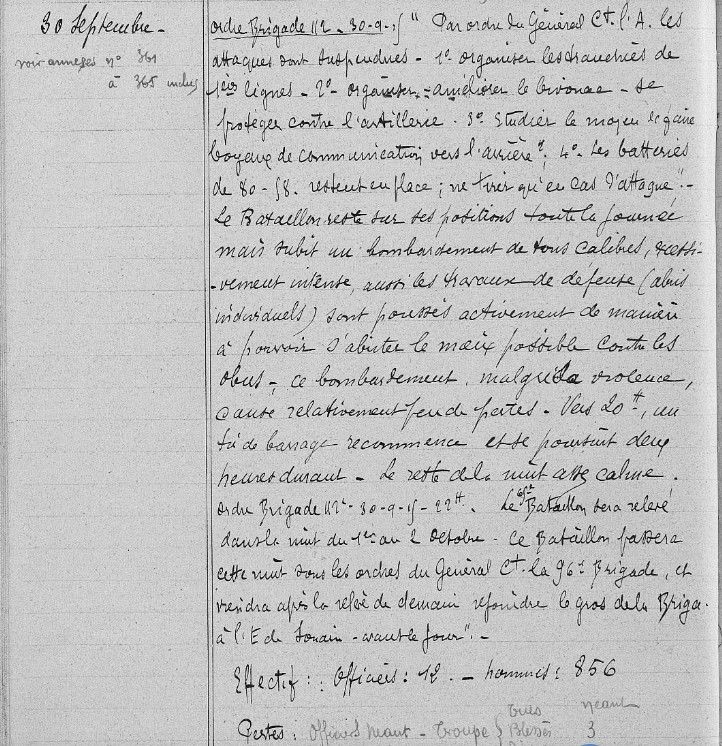 30 Septembre -
voir annexes n° 361
à 365 inclus
Ordre Brigade 112 - 30-9-15 " Par ordre du Général Ct. l'A. les
attaques sont suspendues - 1° organiser les tranchées de
1ères lignes - 2° - organiser - améliorer le bivouac - se
protéger contre l'artillerie . 3° Etudier le moyen de faire
boyaux de communication vers l'arrière ; 4° - Les batteries
de 80 - 58 - restent en place ; ne tirer qu'en cas d'attaque" -
Le Bataillon reste sur ses positions toute la journée
mais subit un bombardement de tous calibres, excessi-
-vement intense, aussi les travaux de défense (abris
individuels) sont poussés activement de manière
à pouvoir s'abriter le mieux possible contre les
obus - ce bombardement, malgré sa violence,
cause relativement peu de pertes - Vers 20 H, un
tir de barrage recommence et se poursuit deux
heures durant - Le reste de la nuit assez calme .
Ordre Brigade 112 - 30-9-15 - 22H . Le 65e Bataillon sera relevé
dans la nuit du 1er au 2 Octobre - Ce Bataillon passera
cette nuit sous les ordres du Général Ct. la 96e Brigade, et
viendra après la relève de demain rejoindre le gros de la Briga.
à l'E de Souain - avant le jour" . -
Effectif : Officiers : 12 . - hommes : 856
Pertes : Officiers néant - Troupe { Tués néant
Blessés 3